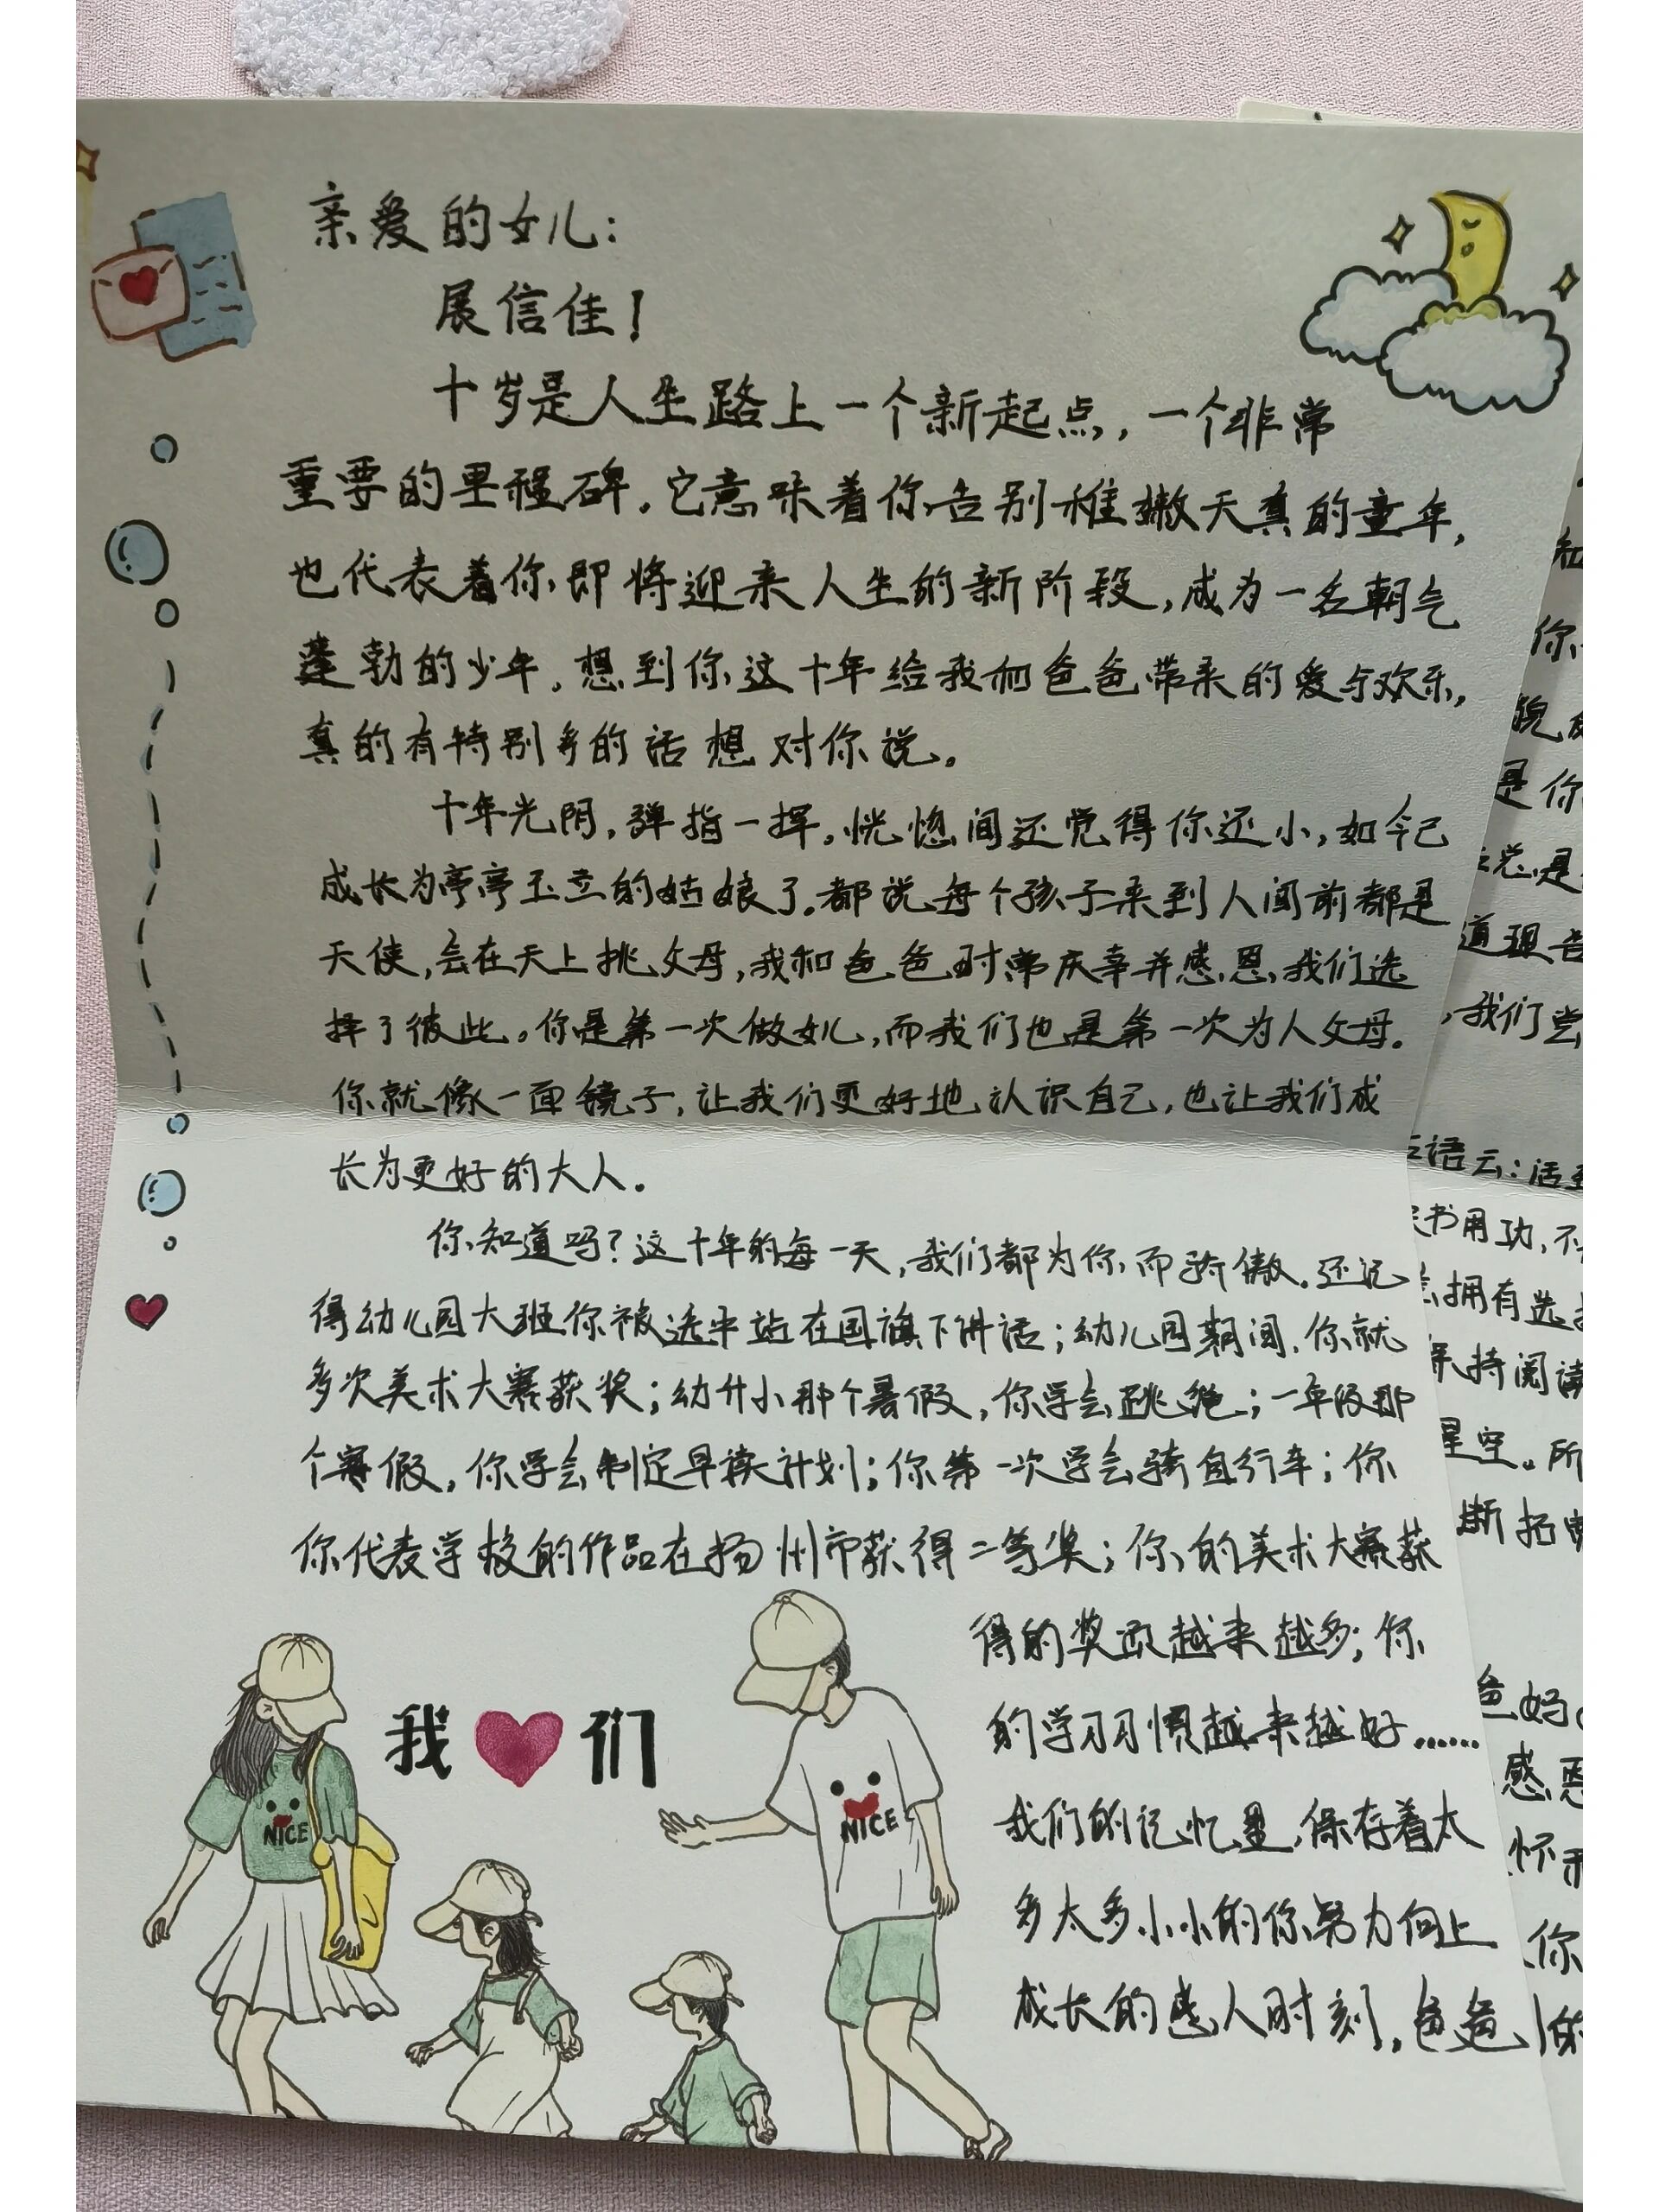 亲爱的女儿：
展信佳！
十岁是人生路上一个新起点，一个非常
重要的里程碑。它意味着你告别稚嫩天真的童年，
也代表着你即将迎来人生的新阶段，成为一名朝气
蓬勃的少年。想到你这十年给我和爸爸带来的爱与欢乐，
真的有特别多的话想对你说。
十年光阴，弹指一挥。恍惚间还觉得你还小，如今已
成长为亭亭玉立的姑娘了。都说每个孩子来到人间前都是
天使，会在天上挑父母，我和爸爸时常庆幸并感恩，我们选
择了彼此。你是第一次做女儿，而我们也是第一次为人父母。
你就像一面镜子，让我们更好地认识自己，也让我们成
长为更好的大人。
你知道吗？这十年的每一天，我们都为你而骄傲。还记
得幼儿园大班你被选中站在国旗下讲话；幼儿园期间，你就
多次美术大赛获奖；幼升小那个暑假，你学会跳绳；一年级那
个寒假，你学会制定早读计划；你第一次学会骑自行车；你
你代表学校的作品在扬州市获得二等奖；你的美术大赛获
得的奖项越来越多；你
的学习习惯越来越好……
我们的记忆里，保存着太
多太多小小的你努力向上
成长的感人时刻，爸爸
我 们
NICE
NICE
你
是你
是
道理告
，我们
语云：活到
书用功，不
拥有选
持阅读
星空。所
断拓
爸妈
感恩
怀
你
的